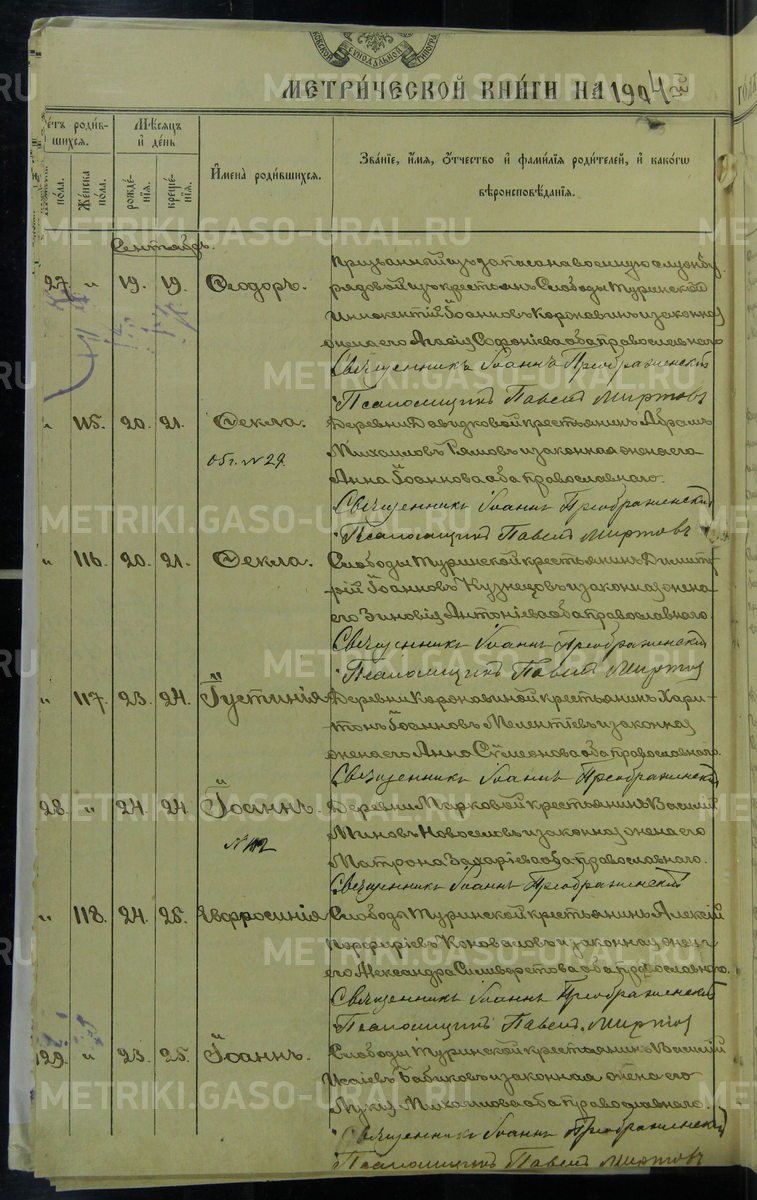 СѴНОДАЛЬНОЙ
МЕТРИ́ЧЕСКОЙ КНИ́ГИ НА 1904
METRIKI.GASO-URAL.RU
роди́вшихся.
Мѣ́сяцъ и҆ де́нь
пола.
Же́нска пола.
рожде́нїѧ.
креще́нїѧ.
И҆мена̀ роди́вшихся.
Зва́нїе, и҆́мѧ, ѻ҆́тчество и҆ фами́лїѧ роди́телей, и҆ како́гѡ
вѣроисповѣ́данїѧ.
Сентябрь.
27. " 19. 19. Ѳеодоръ.
Призванный изъ запаса на военную службу
рядовой изъ крестьянъ Слободы Туринской
Иннокентій Іоанновъ Коровинъ и законная
жена его Агафія Софоніева оба православнаго
Священникъ Іоаннъ Преображенскій
Псаломщикъ Павелъ Миртовъ
" 115. 20. 21. Ѳекла.
№ 29.
Деревни Давидковой крестьянинъ Абрамъ
Михаиловъ и законная жена его
Анна Іоаннова оба православнаго.
Священникъ Іоаннъ Преображенскій
Псаломщикъ Павелъ Миртовъ
" 116. 20. 21. Ѳекла.
Слободы Туринской крестьянинъ Димит-
рій Іоанновъ Кузнецовъ и законная жена
его Зиновія Антоніева оба православнаго
Священникъ Іоаннъ Преображенскій
Псаломщикъ Павелъ Миртов
" 117. 23. 24. Іустинія
Деревни Коровиной крестьянинъ Хари-
тонъ Іоанновъ Мелентіевъ и законная
жена его Анна Стѵмеонова оба православнаго.
Священникъ Іоаннъ Преображенскій
28. " 24. 24. Іоаннъ.
№ 112
Деревни Марковой крестьянинъ Василій
Миновъ Новоселовъ и законная жена его
Матрона Захаріева оба православнаго.
Священникъ Іоаннъ Преображенскій
" 118. 24. 25. Евфросинія
Слободы Туринской крестьянинъ Алексій
Порфиріевъ Коноваловъ и законная жена
его Александра Сильвестрова оба православнаго.
Священникъ Іоаннъ Преображенскій
Псаломщикъ Павелъ Миртов
129. " 23. 25. Іоаннъ.
Слободы Туринской крестьянинъ Василій
Исаіевъ Бабиковъ и законная жена его
Лукія Михаилова оба православнаго.
Священникъ Іоаннъ Преображенскій
Псаломщикъ Павелъ Миртовъ